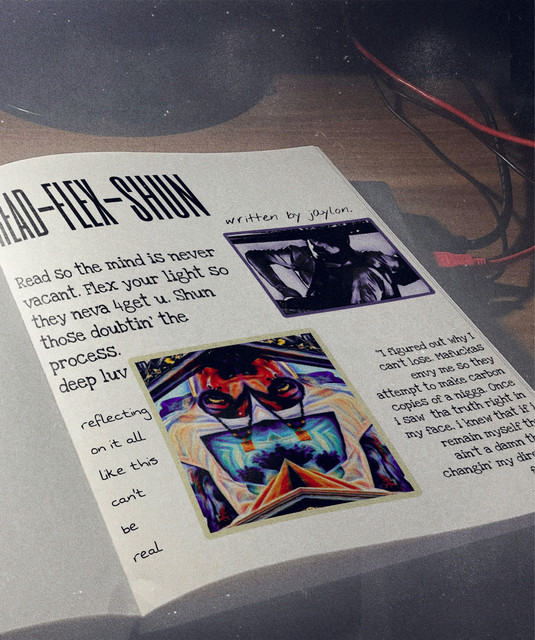 EAD-FLEX-SHUN
written by jaylon.
Read so the mind is never
vacant. Flex your light so
they neva 4get u. Shun
those doubtin' the
process.
deep luv
reflecting
on it all
like this
can't
be
real
"I figured out why I
can't lose. Mafuckas
envy me so they
attempt to make carbon
copies of a nigga. Once
i saw tha truth right in
my face, i knew that if I
remain myself
ain't a damn
changin' my